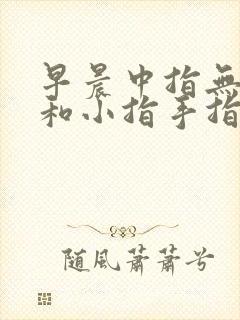 早晨中指無
和小指手指
随風蕭蕭兮